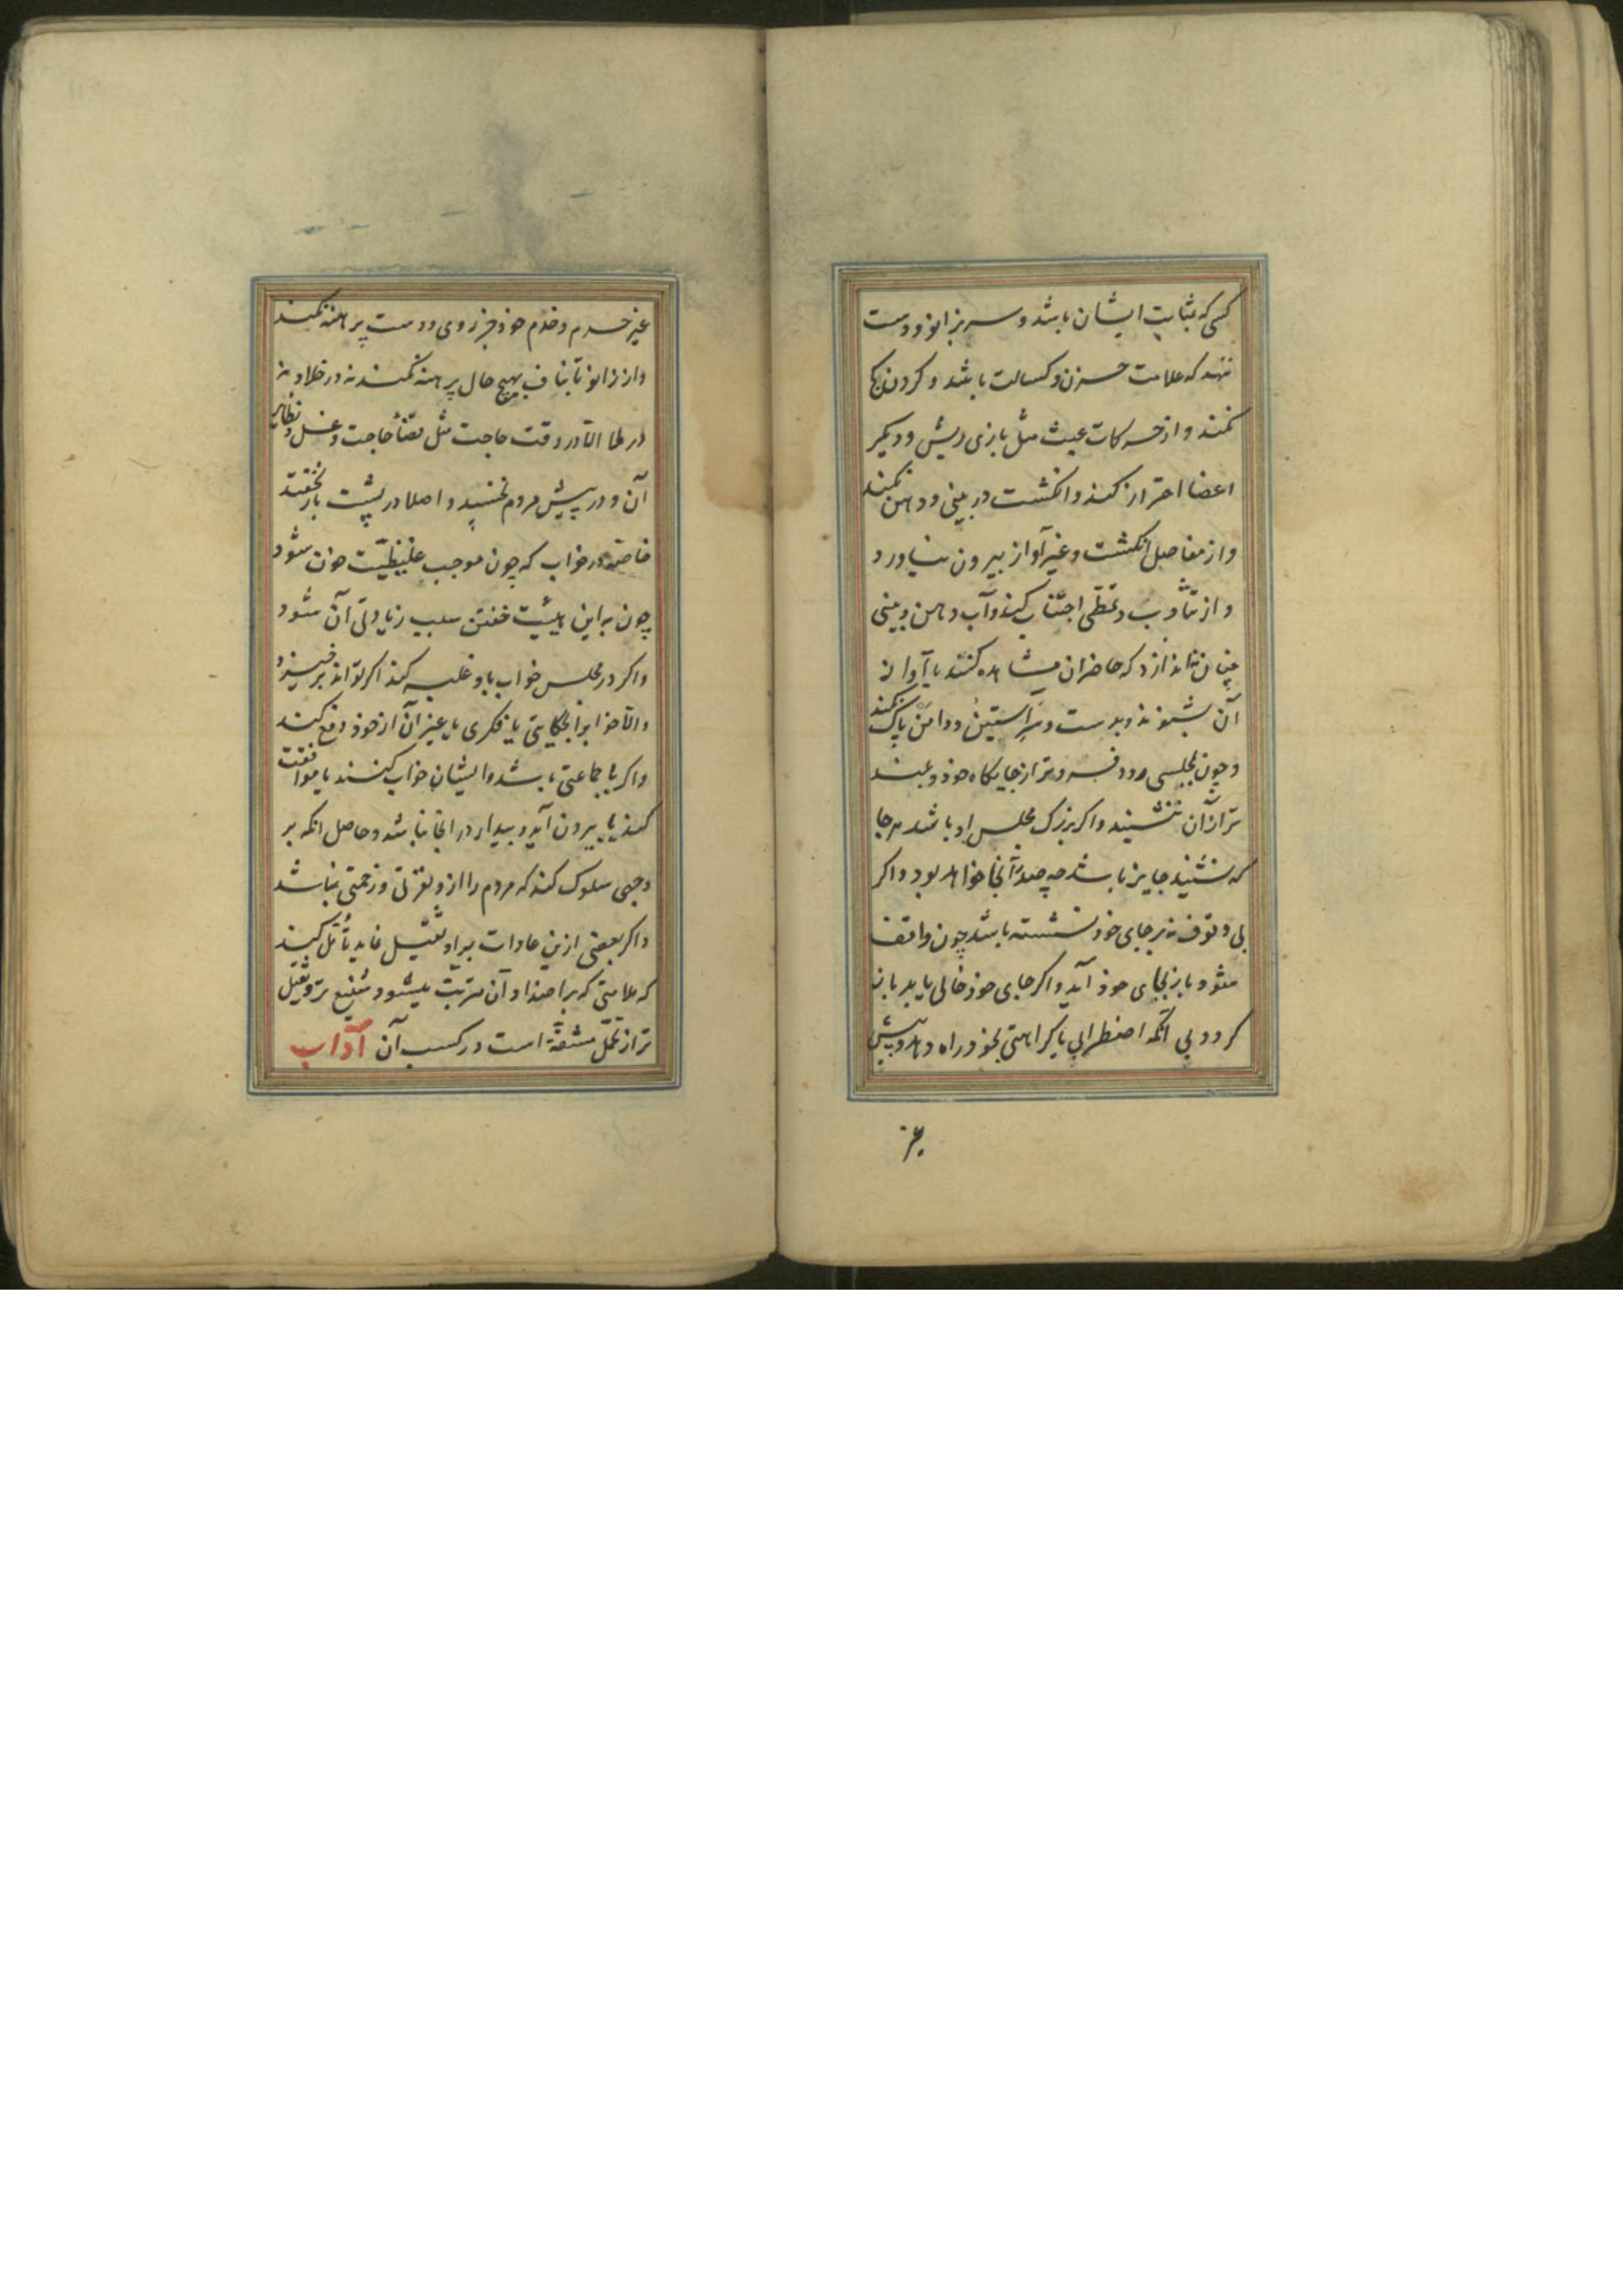 کسی که بمثابت ایشان باشد و سر بزانو و دست
ننهد که علامت حزن و کسالت باشد و گردن کج
نکند و از حرکات عبث مثل بازی ریش و دیگر
اعضا احتراز کند و انگشت در بینی و دهن نکند
و از مفاصل انگشت و غیر آواز بیرون نیاورد
و از تثاوب و تمطی اجتناب کند و آب دهن و بینی
چنان نیندازد که حاضران مشاهده کنند یا آواز
آن بشنوند و بدست و سر آستین و دامن پاک نکند
و چون بمجلسی رود فروتر از جایگاه خود و بلند
تر از آن ننشیند و اگر بزرگ مجلس او باشد هرجا
که نشیند جایز باشد چه صدر آنجا خواهد بود و اگر
بی وقوف نه بر جای خود نشسته باشد چون واقف
شود باز بجای خود آید و اگر جای خود خالی یابد باز
گردد بی آنکه اضطرابی یا کراهتی بخود راه دهد و پیش
غیر
غیر حرم و خدم خود جز روی و دست برهنه نکند
و از زانو تا بناف بهیچ حال برهنه نکند نه در خلا و نه
در ملا الا در وقت حاجت مثل قضاء حاجت و غسل و نظایر
آن و در پیش مردم نخسپد و اصلا در پشت باز نخفتد
خاصه در خواب که چون موجب غلیظیت خون شود
چون به این هیئت خفتن سبب زیادتی آن شود
و اگر در مجلس خواب باو غلبه کند اگر تواند برخیزد
و الا خواب را بحکایتی یا فکری یا غیر آن از خود دفع کند
و اگر با جماعتی باشد و ایشان خواب کنند یا موافقت
کند یا بیرون آید و بیدار در آنجا نباشد و حاصل آنکه بر
وجهی سلوک کند که مردم را از و نفرتی و زحمتی نباشد
و اگر بعضی ازین عادات بر او ثقیل نماید تأمل کند
که ملامتی که بر اضداد آن مترتب میشود شنیع تر و ثقیل
تر از تحمل مشقة است در کسب آن آداب